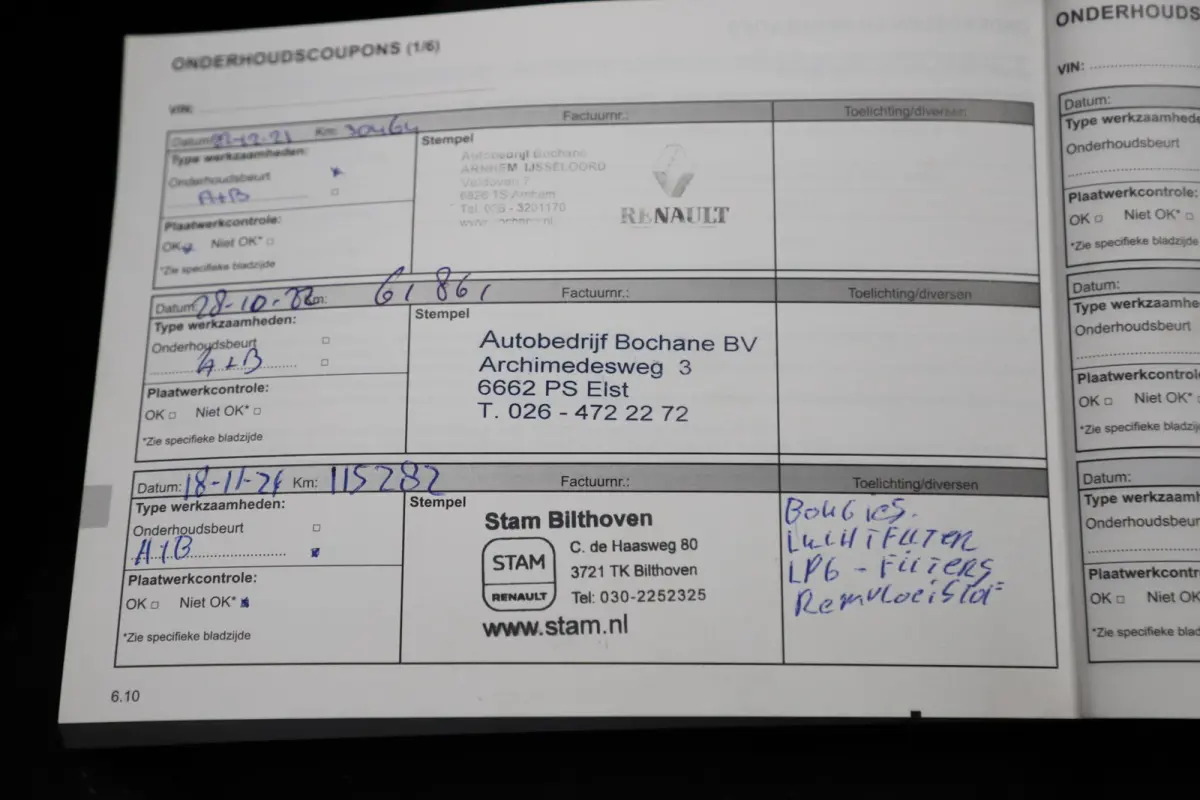 ONDERHOUDSCOUPONS (1/6)
VIN:
Datum: 22-12-21 Km: 30464 Factuurnr.: Toelichting/diversen
Type werkzaamheden:
Onderhoudsbeurt
A+B
Plaatwerkcontrole:
OK Niet OK*
*Zie specifieke bladzijde
Stempel
Autobedrijf Bochane
ARNHEM IJSSELOORD
Veldoven 7
6826 TS Arnhem
Tel. 026 - 3201170
RENAULT
Datum: 28-10-22 Km: 61861 Factuurnr.: Toelichting/diversen
Type werkzaamheden:
Onderhoudsbeurt
A+B
Plaatwerkcontrole:
OK Niet OK*
*Zie specifieke bladzijde
Stempel
Autobedrijf Bochane BV
Archimedesweg 3
6662 PS Elst
T. 026 - 472 22 72
Datum: 18-11-24 Km: 115282 Factuurnr.: Toelichting/diversen
Type werkzaamheden:
Onderhoudsbeurt
A+B
Plaatwerkcontrole:
OK Niet OK*
*Zie specifieke bladzijde
Stempel
Stam Bilthoven
STAM
RENAULT
C. de Haasweg 80
3721 TK Bilthoven
Tel: 030-2252325
www.stam.nl
BOUGIES.
LUCHTFILTER
LPG - FILTERS
REMVLOEISTOF
6.10
ONDERHOUDS
VIN:
Datum:
Type werkzaamhede
Onderhoudsbeurt
Plaatwerkcontrole:
OK Niet OK*
*Zie specifieke bladzijde
Datum:
Type werkzaamhe
Onderhoudsbeurt
Plaatwerkcontrol
OK Niet OK*
*Zie specifieke bladzij
Datum:
Type werkzaamh
Onderhoudsbeur
Plaatwerkcontr
OK Niet OK
*Zie specifieke blad